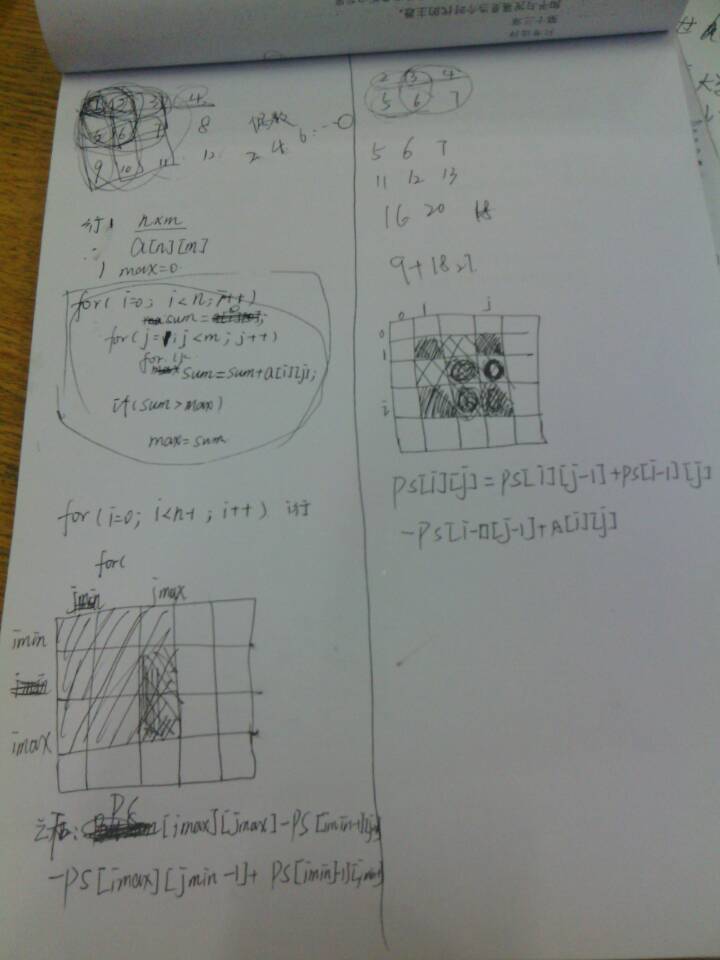 1 2 3 4
5 6 7 8
9 10 11 12
偶数
2 4 6 ... 0
行
n×m
a[n][m]
max=0
for( i=0; i<n; i++)
sum =
for(j= ; j<m; j++)
sum=sum+a[i][j];
if(sum>max)
max=sum
for(i=0; i<n-1; i++) 行
for(
jmin jmax
imin
imax
PS
[imax][jmax]-PS[imin-1][j
-PS[imax][jmin-1]+ PS[imin-1][jmin-1]
2 3 4
5 6 7
5 6 7
11 12 13
16 20 18
9+18
0 1 j
0
1
i
PS[i][j]=PS[i][j-1]+PS[i-1][j]
-PS[i-1][j-1]+A[i][j]